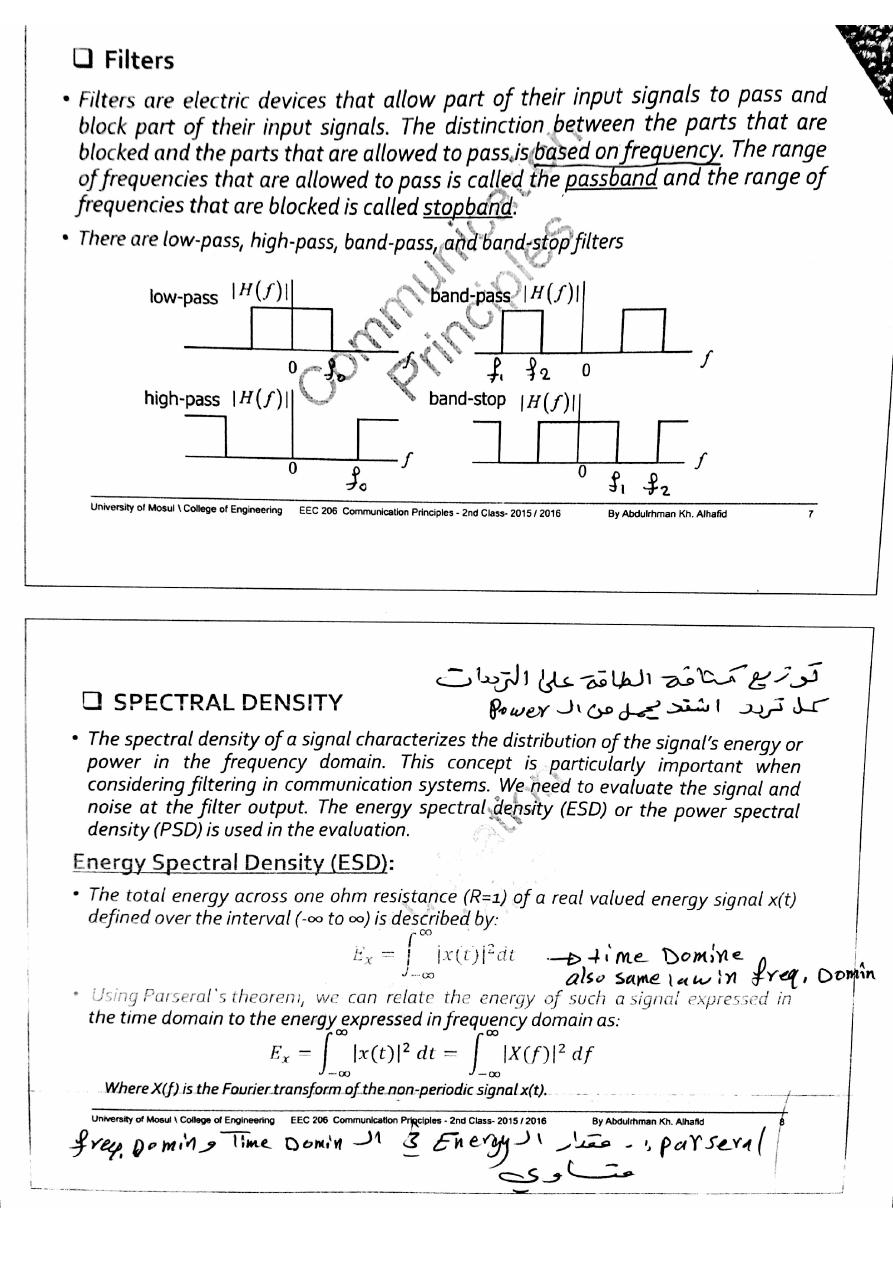 ❑ Filters
• Filters are electric devices that allow part of their input signals to pass and
block part of their input signals. The distinction between the parts that are
blocked and the parts that are allowed to pass is based on frequency. The range
of frequencies that are allowed to pass is called the passband and the range of
frequencies that are blocked is called stopband.
• There are low-pass, high-pass, band-pass, and band-stop filters
Communication
Principles
low-pass |H(f)|
band-pass |H(f)|
0 f₀ f
f₁ f₂ 0 f
high-pass |H(f)|
band-stop |H(f)|
0 f₀ f
0 f₁ f₂ f
University of Mosul \ College of Engineering EEC 206 Communication Principles - 2nd Class- 2015 / 2016 By Abdulrhman Kh. Alhafid 7
توزيع كثافة الطاقة على الترددات
❑ SPECTRAL DENSITY
كل تردد اشقد يحمل من الـ Power
• The spectral density of a signal characterizes the distribution of the signal's energy or
power in the frequency domain. This concept is particularly important when
considering filtering in communication systems. We need to evaluate the signal and
noise at the filter output. The energy spectral density (ESD) or the power spectral
density (PSD) is used in the evaluation.
Energy Spectral Density (ESD):
• The total energy across one ohm resistance (R=1) of a real valued energy signal x(t)
defined over the interval (-∞ to ∞) is described by:
Eₓ = ∫_{-∞}^{∞} |x(t)|² dt → time Domine
also same law in freq. Domin
• Using Parseral's theorem, we can relate the energy of such a signal expressed in
the time domain to the energy expressed in frequency domain as:
Eₓ = ∫_{-∞}^{∞} |x(t)|² dt = ∫_{-∞}^{∞} |X(f)|² df
Where X(f) is the Fourier transform of the non-periodic signal x(t).
University of Mosul \ College of Engineering EEC 206 Communication Principles - 2nd Class- 2015 / 2016 By Abdulrhman Kh. Alhafid 8
parseral مقدار الـ Energy الـ Time Domin و freq. Domin
متساوي